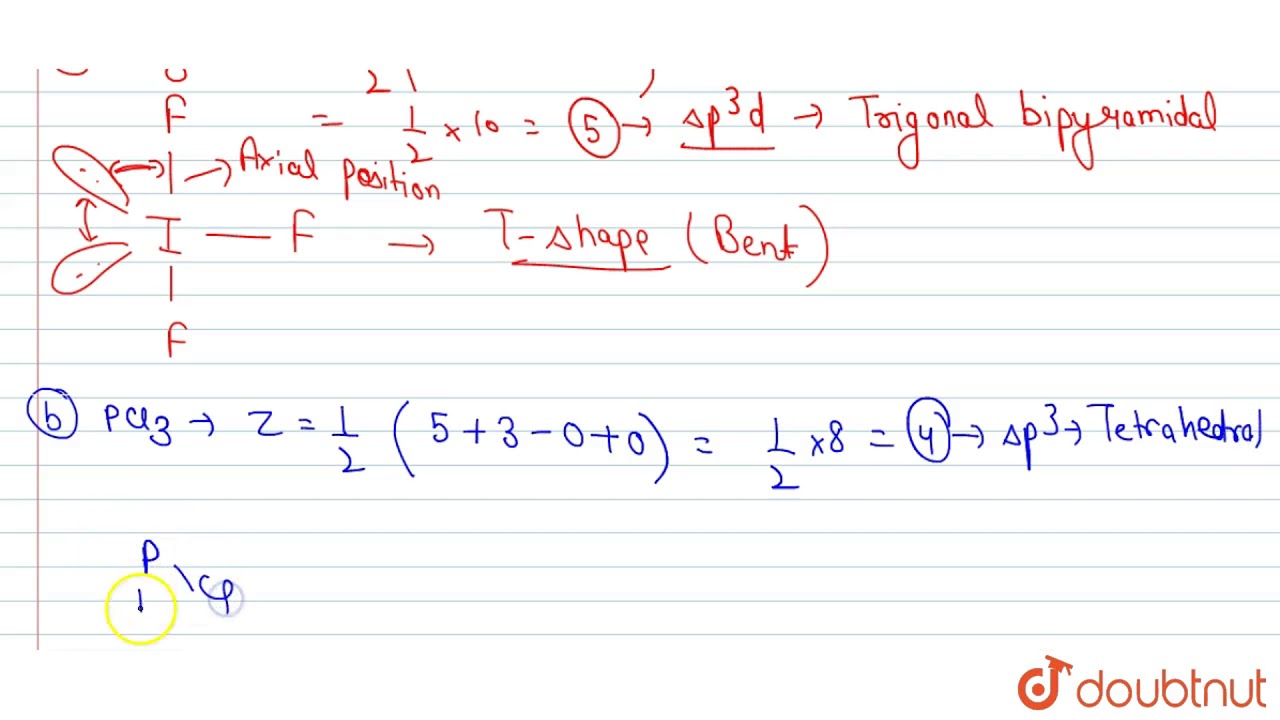 2
F = 1/2 × 10 = 5 → sp³d → Trigonal bipyramidal
→ Axial position
I — F → T-shape (Bent)
F
b PCl3 → Z = 1/2 (5+3-0+0) = 1/2 ×8 = 4 → sp³ → Tetrahedral
P
Cl
doubtnut